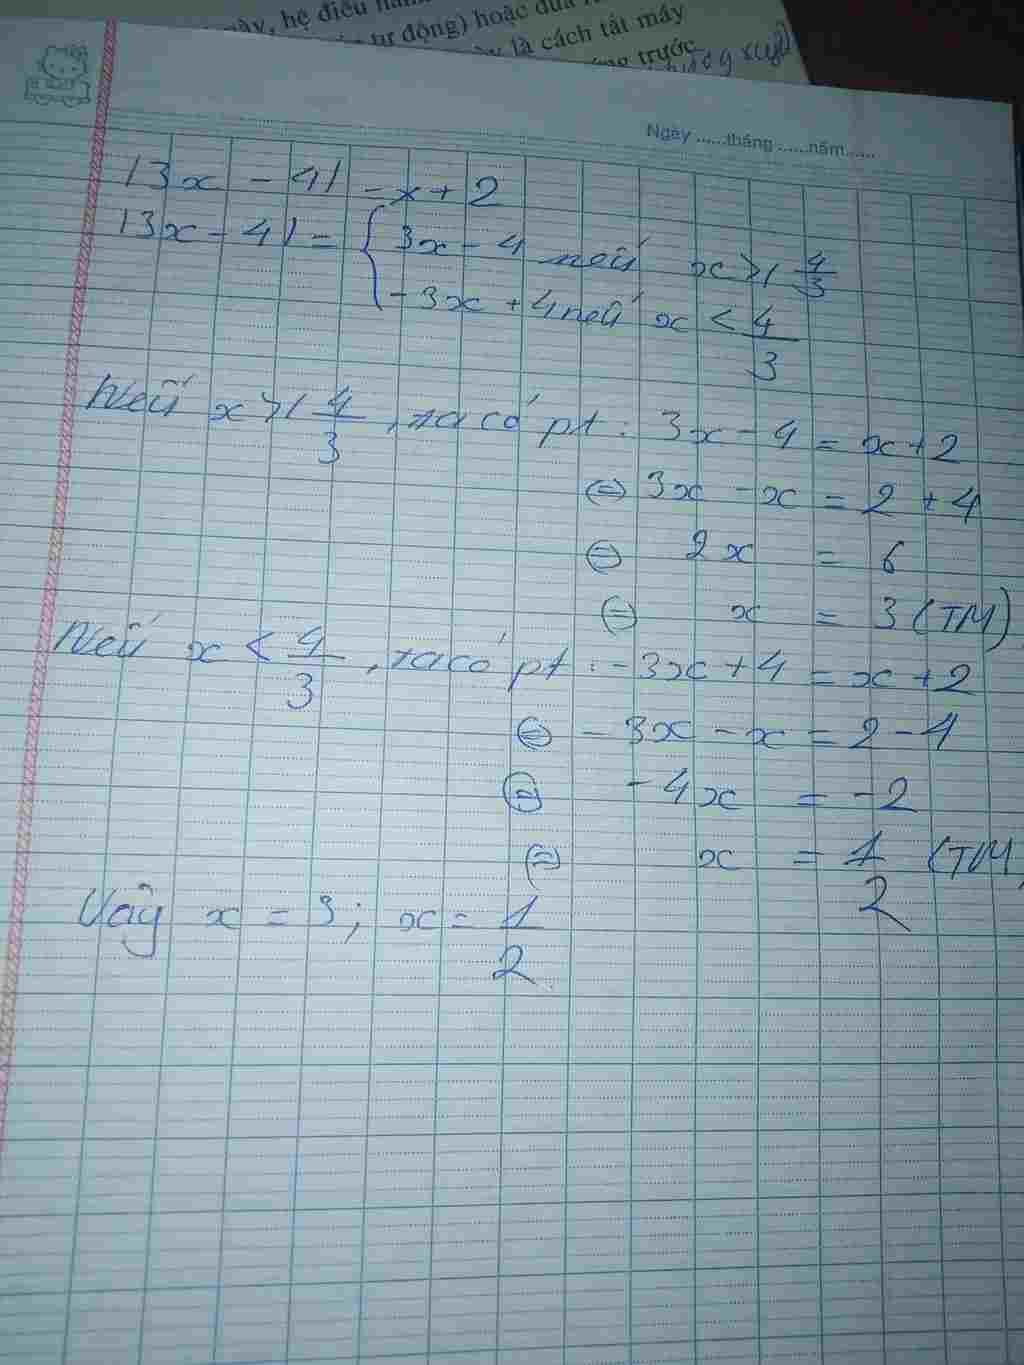 ày, hệ điều hàn
tự động) hoặc đưa
là cách tắt máy
trước
Ngày ......tháng ......năm......
|3x - 4| = x + 2
|3x - 4| = { 3x - 4 nếu x ≥ 4/3
-3x + 4 nếu x < 4/3
Nếu x ≥ 4/3, ta có pt: 3x - 4 = x + 2
⇔ 3x - x = 2 + 4
⇔ 2x = 6
⇔ x = 3 (TM)
Nếu x < 4/3, ta có pt: -3x + 4 = x + 2
⇔ -3x - x = 2 - 4
⇔ -4x = -2
⇔ x = 1/2 (TM
Vậy x = 3; x = 1/2